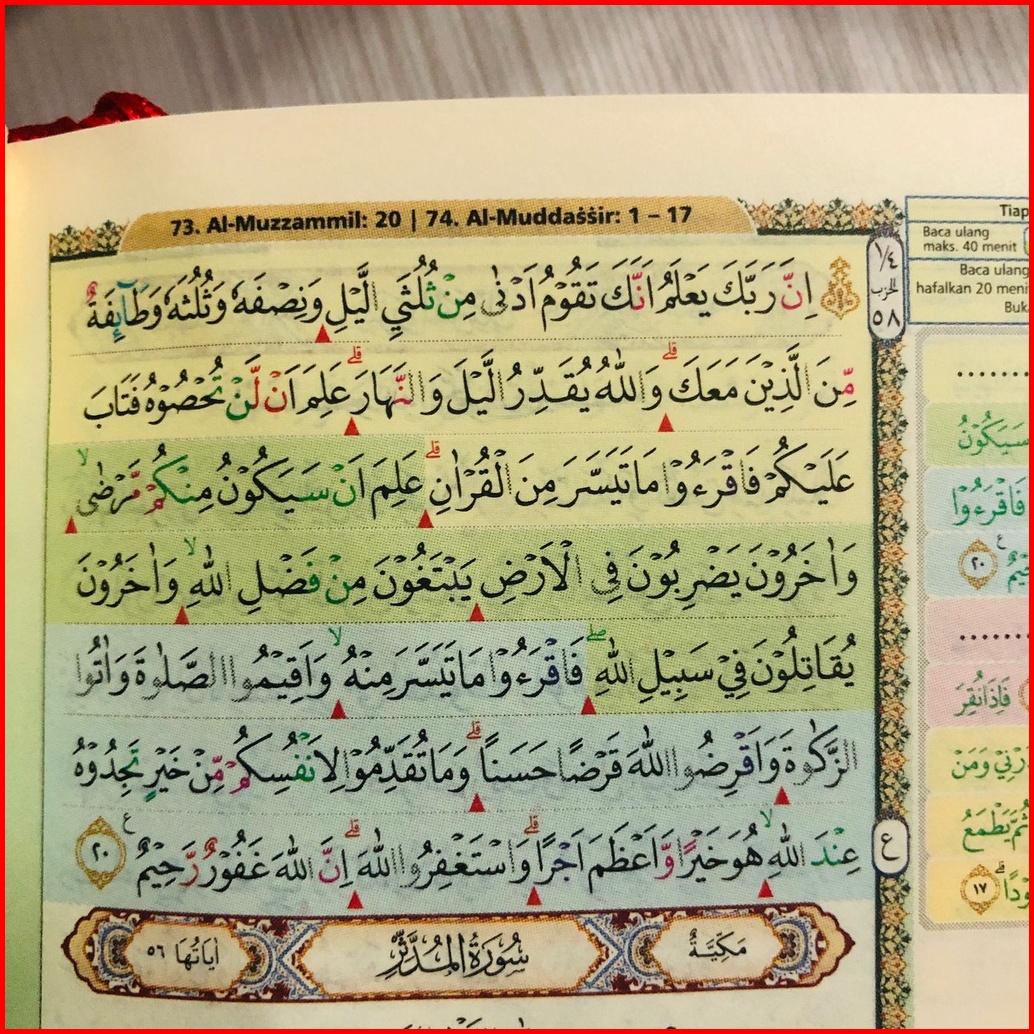 73. Al-Muzzammil: 20 | 74. Al-Muddaṡṡir: 1 – 17
اِنَّ رَبَّكَ يَعْلَمُ اَنَّكَ تَقُوْمُ اَدْنٰى مِنْ ثُلُثَيِ الَّيْلِ وَنِصْفَهٗ وَثُلُثَهٗ وَطَاۤىِٕفَةٌ
مِّنَ الَّذِيْنَ مَعَكَۗ وَاللّٰهُ يُقَدِّرُ الَّيْلَ وَالنَّهَارَۗ عَلِمَ اَنْ لَّنْ تُحْصُوْهُ فَتَابَ
عَلَيْكُمْ فَاقْرَءُوْا مَا تَيَسَّرَ مِنَ الْقُرْاٰنِۗ عَلِمَ اَنْ سَيَكُوْنُ مِنْكُمْ مَّرْضٰىۙ
وَاٰخَرُوْنَ يَضْرِبُوْنَ فِى الْاَرْضِ يَبْتَغُوْنَ مِنْ فَضْلِ اللّٰهِۙ وَاٰخَرُوْنَ
يُقَاتِلُوْنَ فِيْ سَبِيْلِ اللّٰهِۖ فَاقْرَءُوْا مَا تَيَسَّرَ مِنْهُۙ وَاَقِيْمُوا الصَّلٰوةَ وَاٰتُوا
الزَّكٰوةَ وَاَقْرِضُوا اللّٰهَ قَرْضًا حَسَنًاۗ وَمَا تُقَدِّمُوْا لِاَنْفُسِكُمْ مِّنْ خَيْرٍ تَجِدُوْهُ
عِنْدَ اللّٰهِۙ هُوَ خَيْرًا وَّاَعْظَمَ اَجْرًاۗ وَاسْتَغْفِرُوا اللّٰهَۗ اِنَّ اللّٰهَ غَفُوْرٌ رَّحِيْمٌ ࣖ ٢٠
مَكِّيَّةٌ سُوْرَةُ الْمُدَّثِّرِ اٰيَاتُهَا ٥٦
١/٤
الحزب
٥٨
ع
Tiap
Baca ulang
maks. 40 menit
Baca ulang
hafalkan 20 meni
Buk
سَيَكُوْنُ
فَاقْرَءُوْا
٢٠
فَاِذَا نُقِرَ
ذَرْنِيْ وَمَنْ
ثُمَّ يَطْمَعُ
١٧